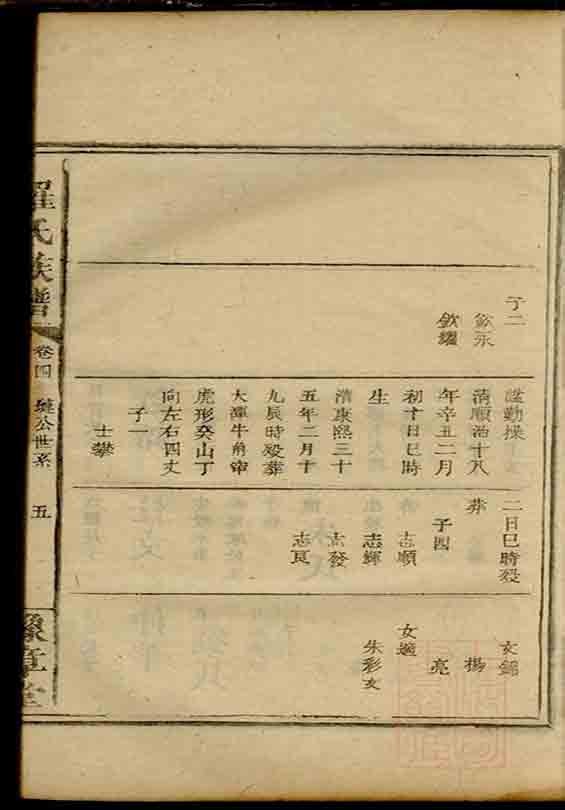 子二
欽永
欽耀
謚勤操
清順治十八
年辛丑二月
初十日巳時
生
清康熙三十
五年二月十
九辰時殁葬
大潭牛角窄
虎形癸山丁
向左右四丈
子一
士攀
二日巳時殁
葬
子四
志順
志輝
志發
志良
女錦
楊
亮
女適
朱彩文
羅氏族譜
卷四
公世系
五
豫章堂